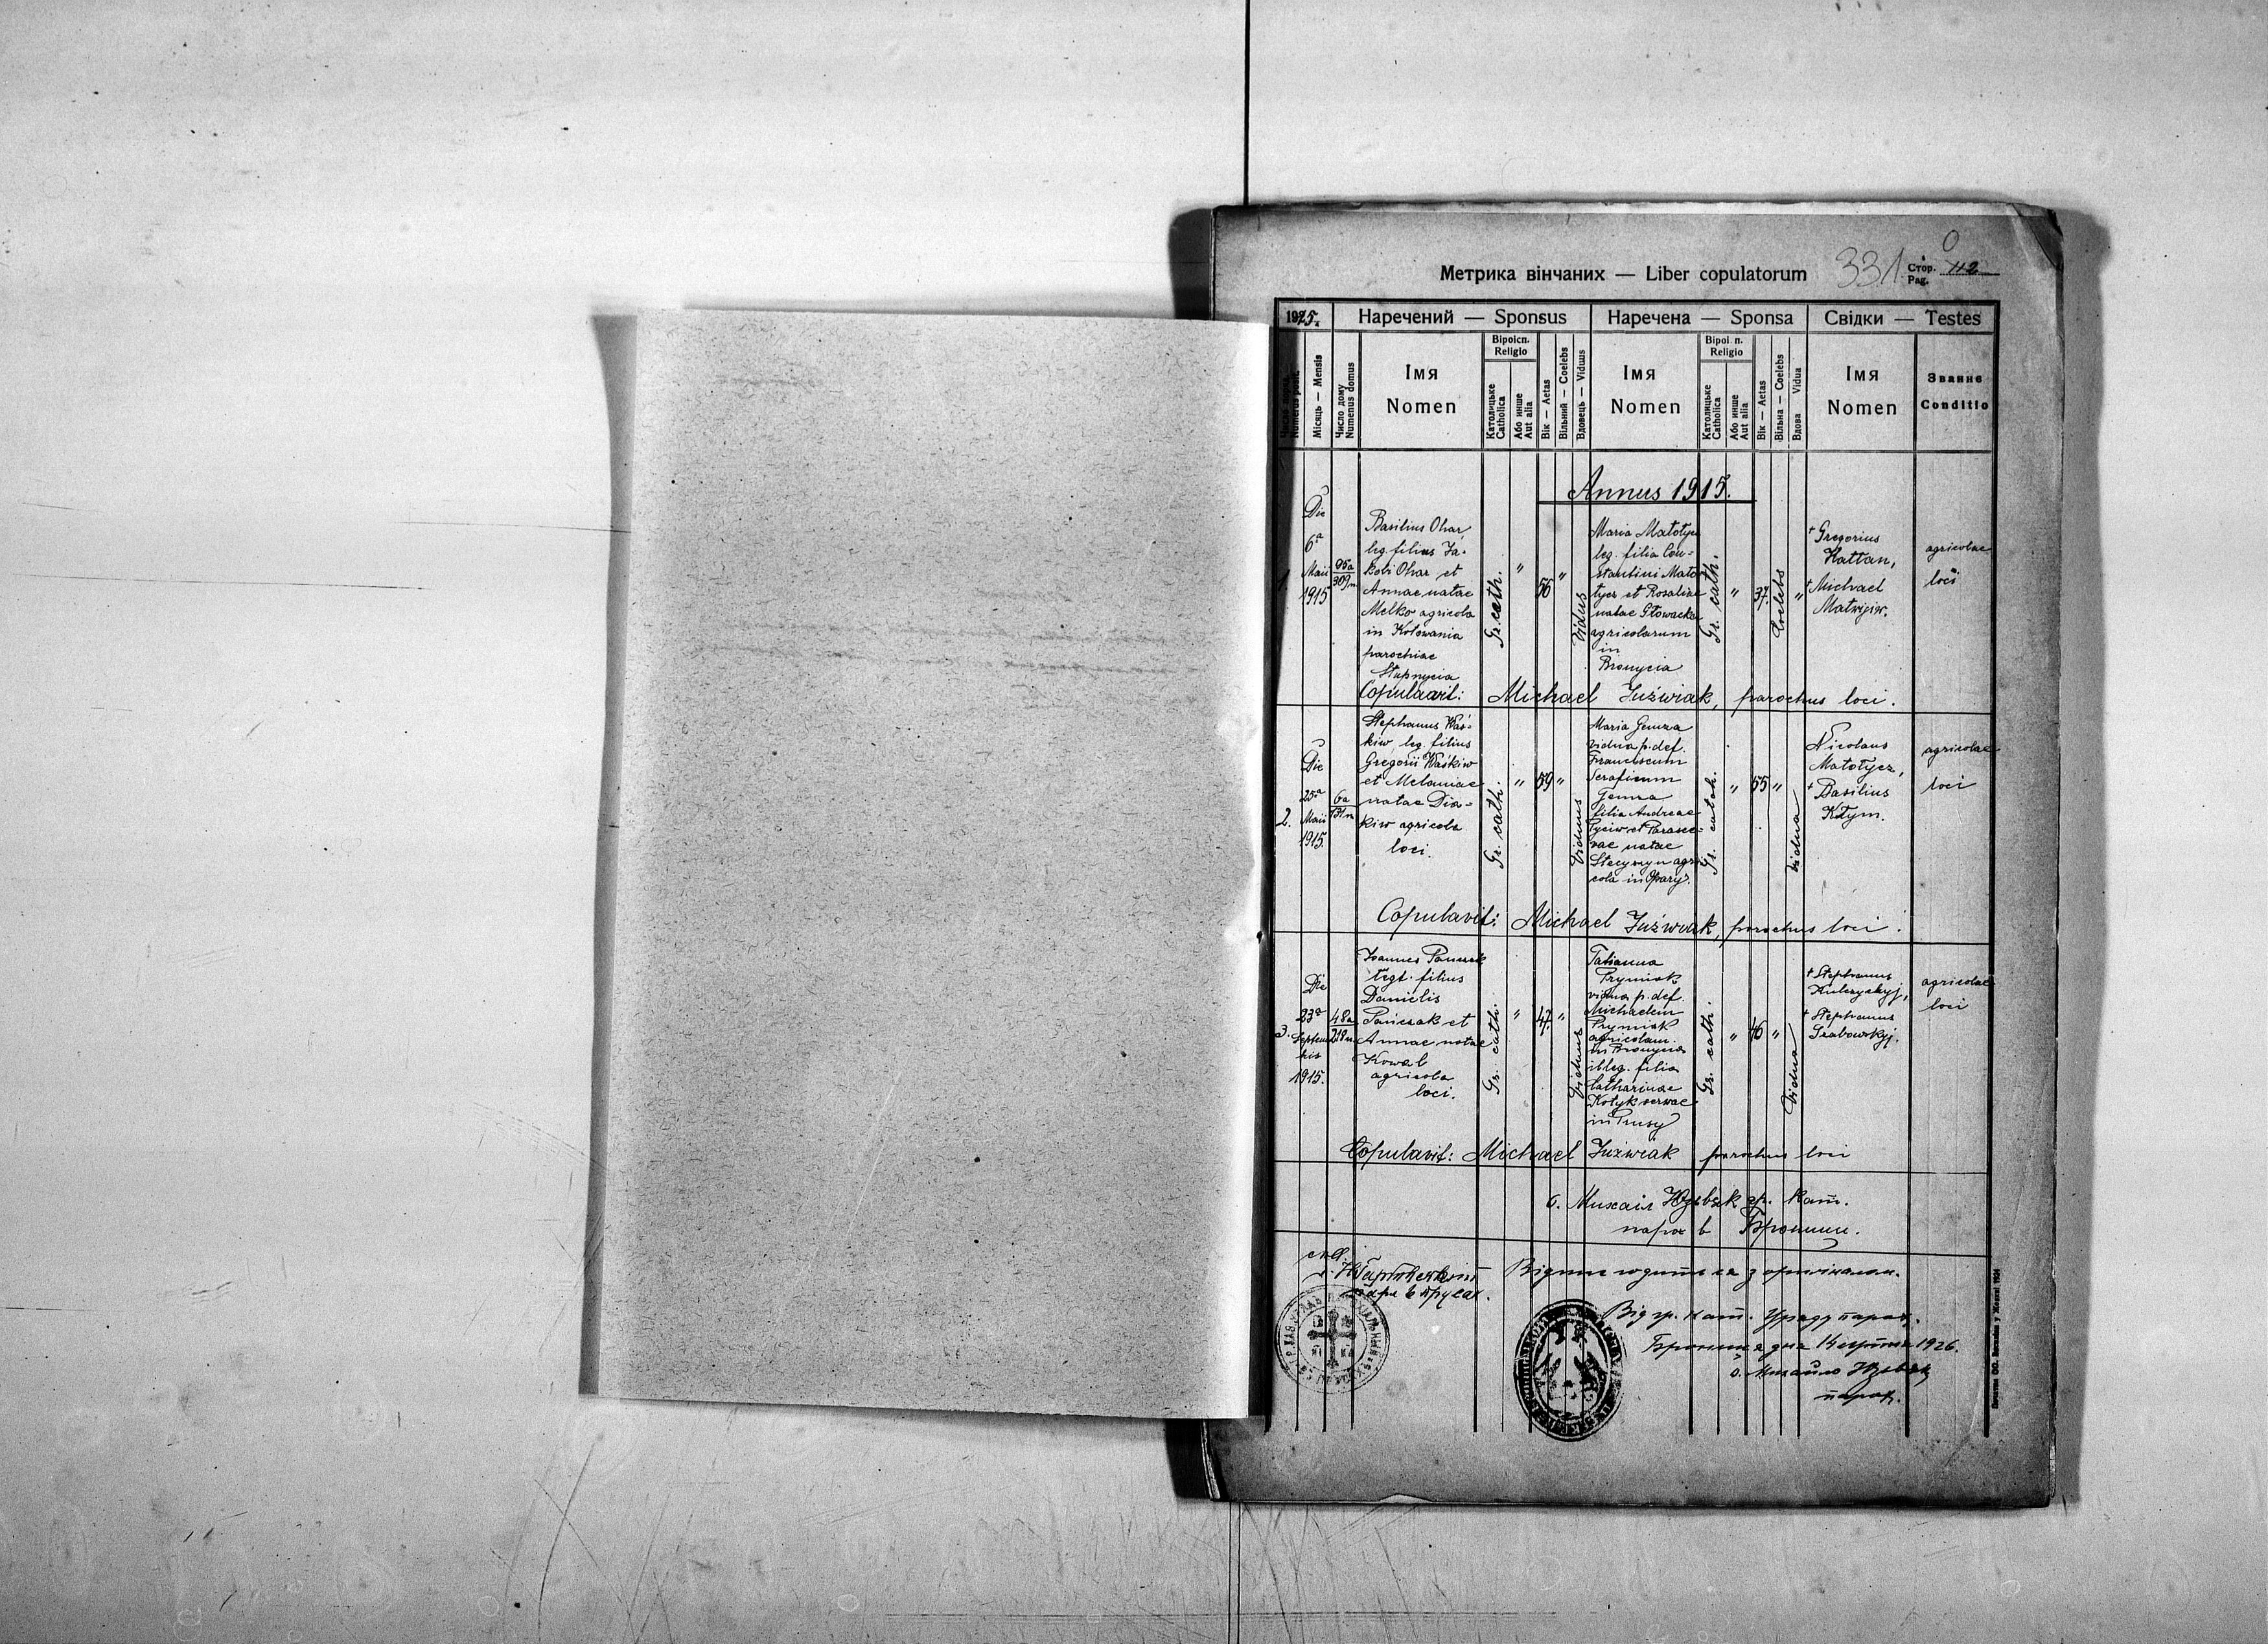 Метрика вінчаних — Liber copulatorum
331
Стор.
Pag.
1915.
Наречений — Sponsus
Наречена — Sponsa
Свідки — Testes
Місяць — Mensis
Число дому
Numerus domus
Імя
Nomen
Віроісп.
Religio
Католицьке
Catholica
Або инше
Aut alia
Вік — Aetas
Вільний — Coelebs
Вдовець — Viduus
Імя
Nomen
Religio
Католицьке
Catholica
Або инше
Aut alia
Вік — Aetas
Вільна — Coelebs
Вдова Vidua
Імя
Nomen
Званнє
Conditio
Annus 1915.
1.
Die
6ª
Maii
1915
95a
309n.
Basilius Ohar,
leg. filius Ja-
kobi Ohar et
Annae natae
Melko agricola
in Kołowania
parochiae
Stupnycia
Gr. cath.
"
56
"
Viduus
Maria Matołycz
leg. filia Con-
stantini Mato-
łycz et Rosaliae
natae Głowacka
agricolarum
in
Bronycia
Gr. cath.
"
37.
Coelebs
"
+ Gregorius
Kattan,
+ Michael
Matwijiw.
agricolae
loci
Copulavit: Michael Juźwiak, parochus loci.
2.
Die
25.ª
Maii
1915.
6a
131n
Stephanus Waś-
kiw, leg. filius
Gregorii Waśkiw
et Melaniae
natae Dia-
kiw agricola
loci.
Gr. cath.
"
59
"
Viduus
Maria Gemza
vidua p. def.
Franciscum
Seraficum
Gemza
filia Andreae
Pyciw et Parasce-
vae natae
Stecyszyn agri-
cola in Opary.
Gr. catoh.
"
55
"
Vidua
Nicolaus
Matołycz,
+ Basilius
Kłym.
agricolae
loci
Copulavit: Michael Juźwiak, parochus loci.
3.
Die
23ª
Septem
bris
1915.
48a
218n.
Joannes Panczak
legt. filius
Danielis
Pańczak et
Annae natae
Kowal
agricola
loci.
Gr. cath.
"
47.
"
Viduus
Tatianna
Prymiak
vidua p. def.
Michaelem
Prymiak
agricolam
in Bronycia
illeg. filia
Catharinae
Kotyk servae
in Prusy
Gr. cath.
"
46
"
Vidua
+ Stephanus
Kulczyckyj,
+ Stephanus
Grabowskyj.
agricolae
loci
Copulavit: Michael Juźwiak parochus loci
о. Михаіл Юзьвяк гр. кат.
парох в Брониці.
парх в Прусах.
Відпис годиться з оригіналом.
Від гр. кат. Уряду парох.
Брониця дня 14 серпня 1926.
о. Михайло Юзьвяк
парох.